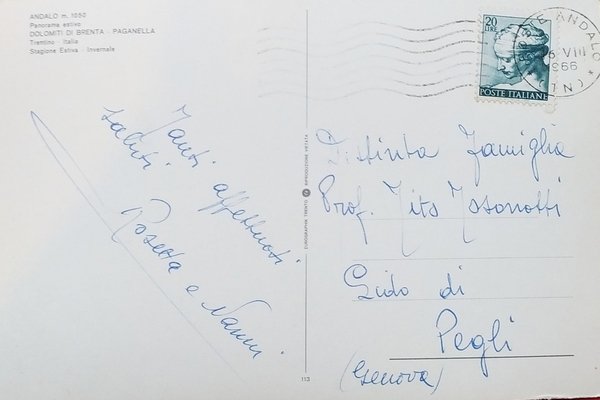 ANDALO m. 1050
Panorama estivo
DOLOMITI DI BRENTA - PAGANELLA
Trentino - Italia
Stagione Estiva - Invernale
20
LIRE
POSTE ITALIANE
ANDALO
6 VIII
1966
(TN)
Tanti affettuosi
saluti
Rosetta e Nanni
EUROGRAPHIA TRENTO
RIPRODUZIONE VIETATA
Distinta Famiglia
Prof. Tito
Lido di
Pegli
(Genova)
113